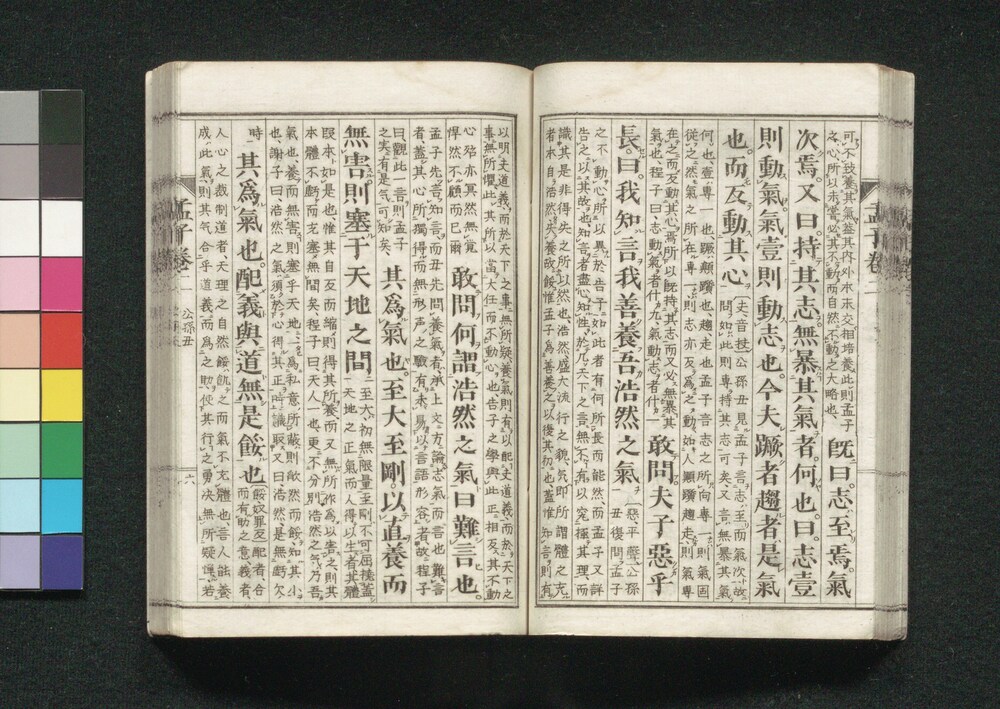 可不致養其氣蓋其内外本末交相培養此則孟子
之心所以未嘗必其不動而自然不動之大略也
既曰志至焉氣
次焉又曰持其志無暴其氣者何也曰志壹
則動氣氣壹則動志也今夫蹶者趨者是氣
也而反動其心
夫音扶公孫丑見孟子言志至而氣次故
問如此則專持其志可矣又言無暴其氣
何也壹專一也蹶顚躓也趨走也孟子言志之所向專一則氣固
從之然氣之所在專一則志亦反爲之動如人顚躓趨走則氣專
在是而反動其心焉所以既持其志而又必無暴其
氣也程子曰志動氣者什九氣動志者什一
敢問夫子惡乎
長曰我知言我善養吾浩然之氣
惡平聲公孫
丑復問孟子
之不動心所以異於告子如此者有何所長而能然而孟子又詳
告之以其故也知言者盡心知性於凡天下之言無不有以究極其理而
識其是非得失之所以然也浩然盛大流行之貌氣即所謂體之充
者本自浩然失養故餒惟孟子爲善養之以復其初也蓋惟知言則有
孟子卷二
以明夫道義而於天下之事無所疑養氣則有以配夫道義而於天下之
事無所懼此其所以當大任而不動心也告子之學與此正相反其不動
心殆亦冥然無覺
悍然不顧而已爾
敢問何謂浩然之氣曰難言也
孟子先言知言而丑先問養氣者承上文方論志氣而言也難言
者蓋其心所獨得而無形声之驗有未易以言語形容者故程子
曰觀此一言則孟子
之實有是气可知矣
其爲氣也至大至剛以直養而
無害則塞于天地之間
至大初無限量至剛不可屈撓蓋
天地之正氣而人得以生者其體
段本如是也惟其自反而縮則得其所養而又無所作爲以害之則其
本體不虧而充塞無間矣程子曰天人一也更不分別浩然之氣乃吾
氣也養而無害則塞乎天地一爲私意所蔽則欿然而餒知其小
也謝子曰浩然之氣須於心得其正時識取又曰浩然是無虧欠
時
其爲氣也配義與道無是餒也
餒奴罪反配者合
而有助之意義者
人心之裁制道者天理之自然餒飢乏而氣不充體也言人能養
成此氣則其气合乎道義而爲之助使其行之勇決無所疑憚若
孟子卷二
公孫丑
六